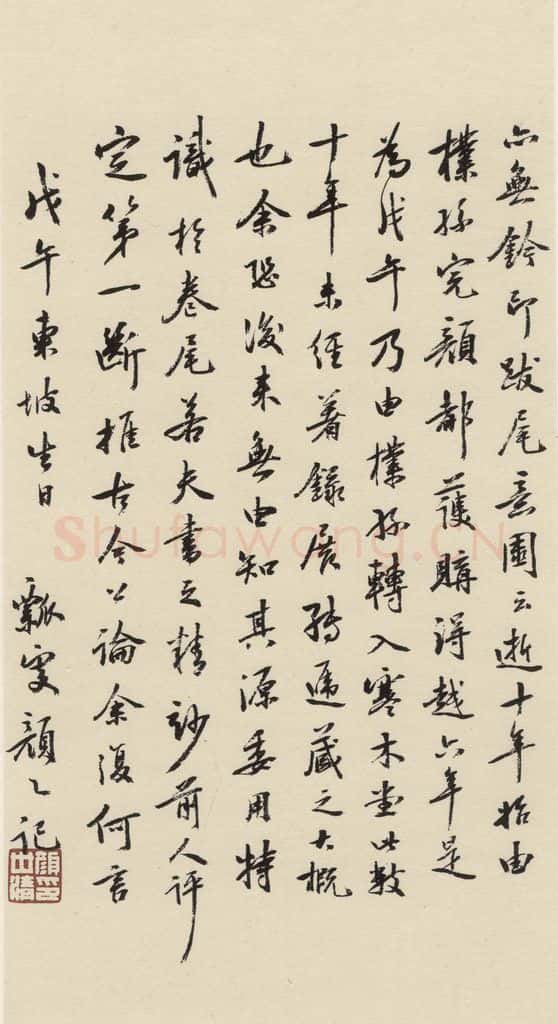 亦無鈐印跋尾意園云逝十年始由
樸孫完顏都護購得越六年是
為戊午乃由樸孫轉入寒木堂此數
十年未經著錄展轉遞藏之大概
也余恐後來無由知其源委用特
識於卷尾若夫書之精妙前人評
定第一斷推古今公論余復何言
戊午東坡生日 瓢叟顏記
Shufawang.CN